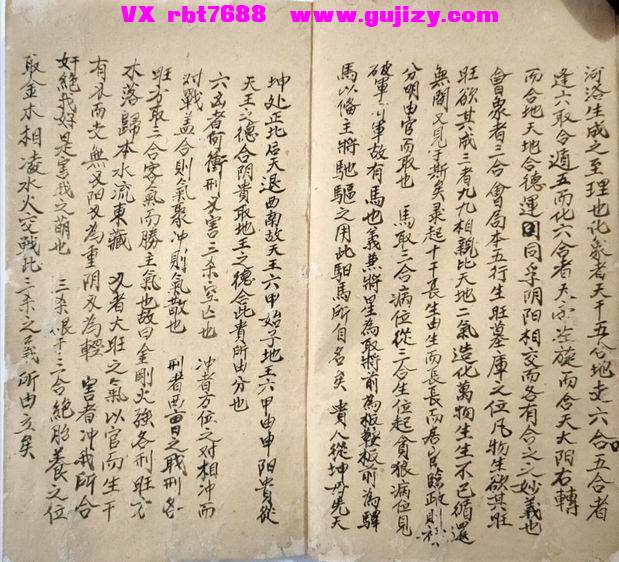 VX rbt7688 www.gujizy.com
河洛生成之至理也化象者天干五合地支六合五合者
逢六取合遁五而化六合者天左旋而合天大陽右轉
而合地天地合德運同孚阴阳相交而各有合之之妙義也
會象者三合會局本五行生旺墓庫之位凡物生欲其旺
旺欲其成三者九九相親比天地二氣造化萬物生生不已循還
無間又見于斯矣录起十干長生由生而長長而居官臨政則
分明由官而取也 馬取三合病位從三合生位起貪狼病位見
破軍軍故有馬也義兼將星為取將前為板鞍板前為驛
馬以偹主將馳驅之用此馹馬所自名矣 貴人從坤先天
坤处正北后天退西南故天王六甲始子地王六甲由申阳貴從
天王之德合阴貴取地王之德合此貴所由分也
六玄者何衝刑又害三杀空亡也 冲者方位之对相冲而
对戰盖合則氣聚冲則氣散也 刑者酉日之戕刑各
旺方取三合客氣而勝主氣也故曰金剛火強各刑旺方
木落歸本水流東藏 又者大旺之氣以官而生干
有不而支無又阳又為重阴又為輕 害者冲我所合
奸絶我好是害我之萌也 三杀三合絶胎養之位
取金木相凌水火交戰此三杀之義所由立矣